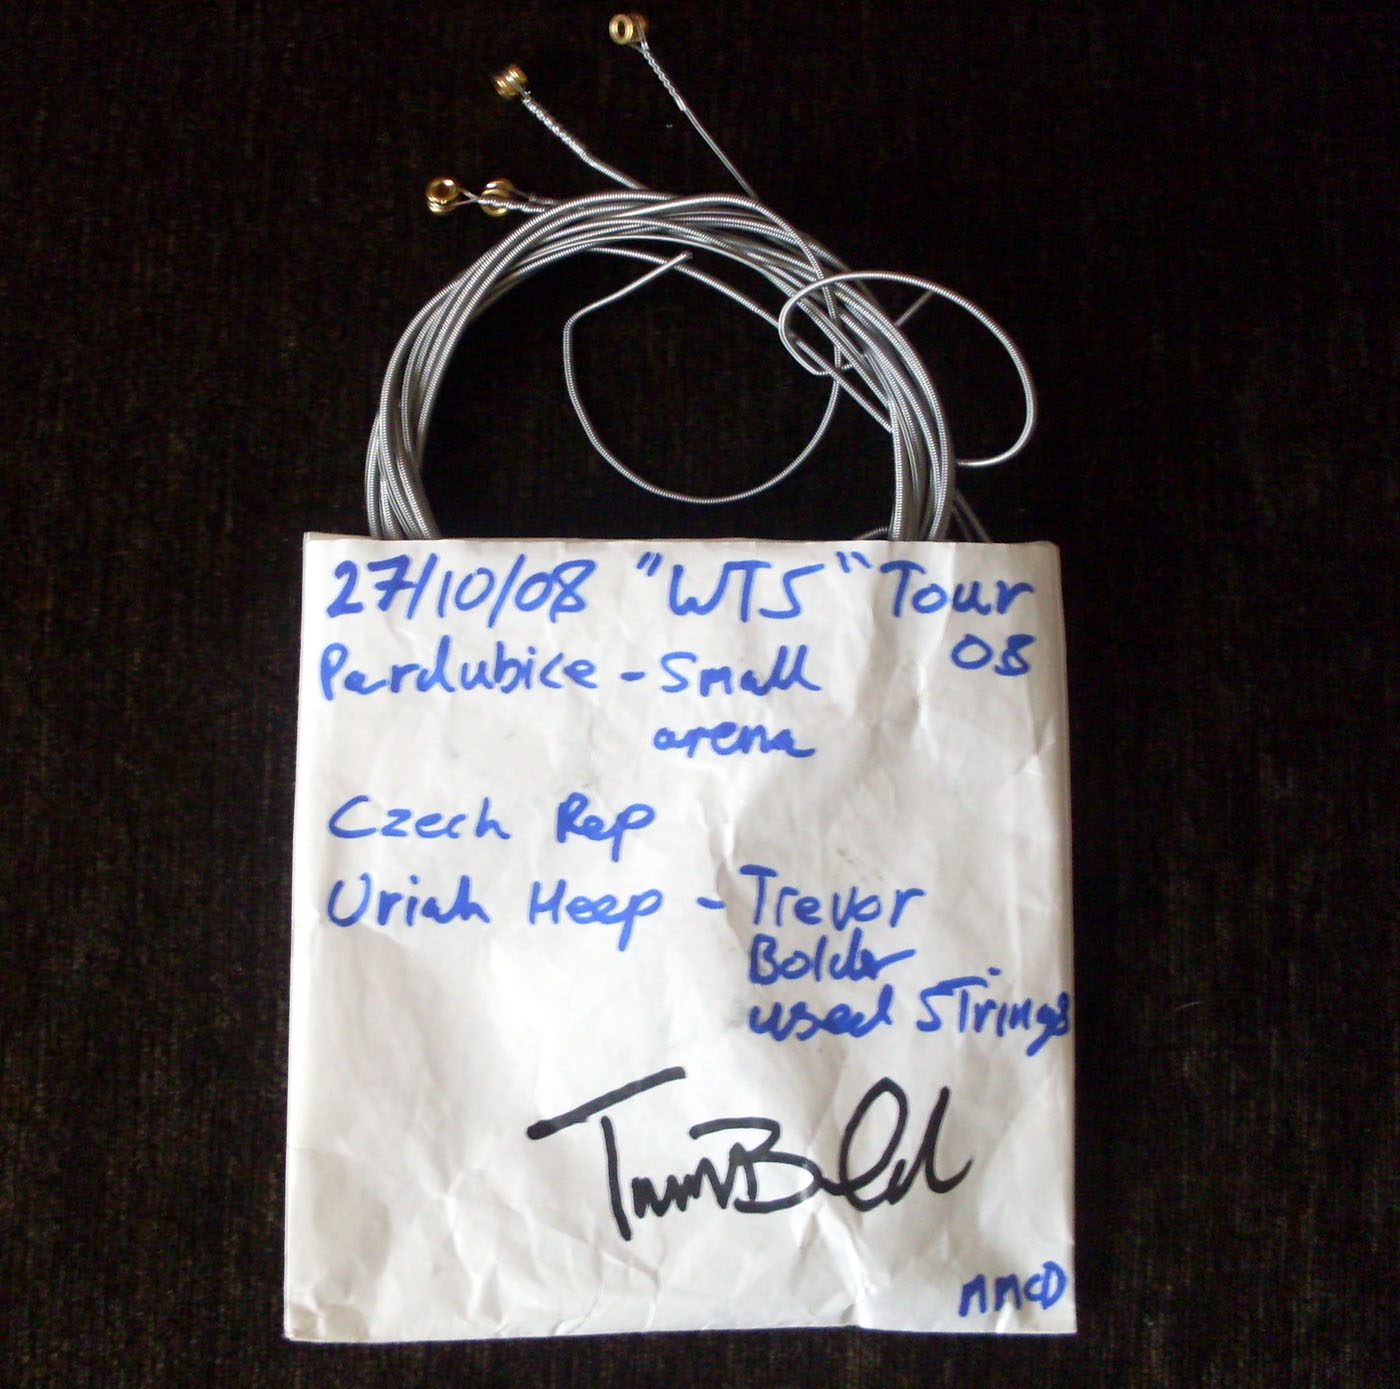 27/10/08 "WTS" Tour
08
Pardubice - Small
arena
Czech Rep
Uriah Heep - Trevor
Bolder
used Strings
Trevor Bolder
MMCD